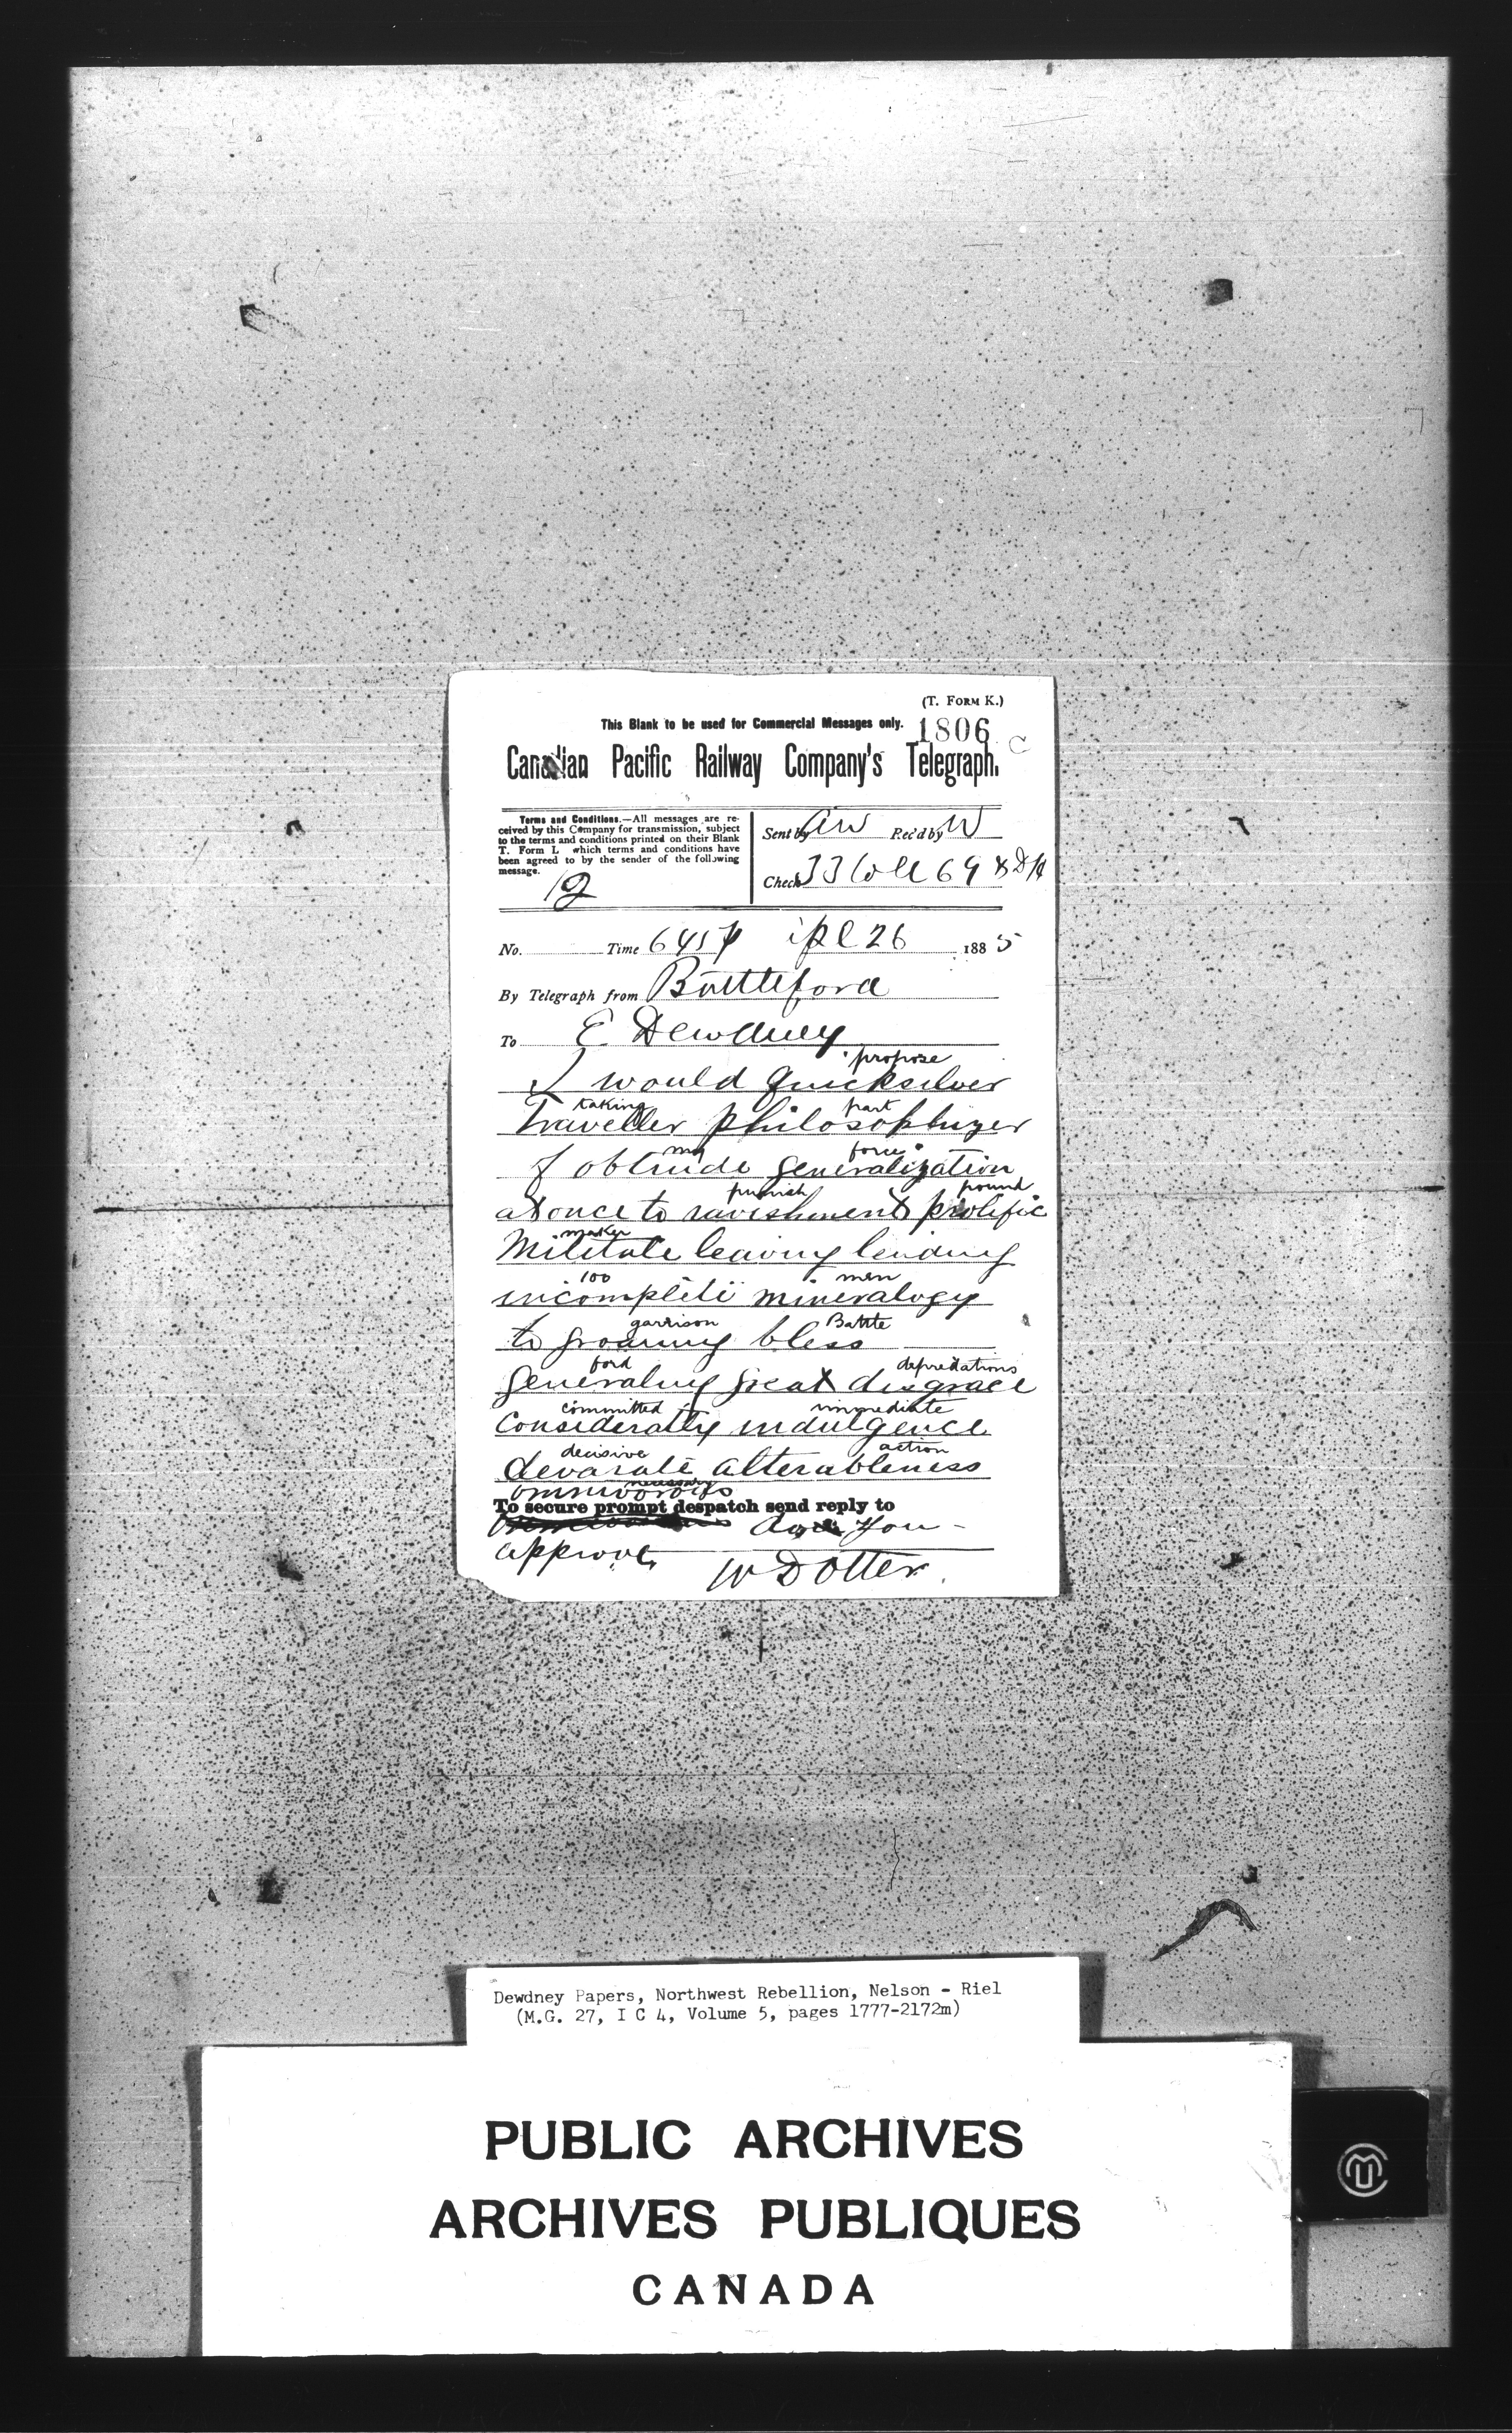 (T. FORM K.)
This Blank to be used for Commercial Messages only.
1806 C
Canadian Pacific Railway Company's Telegraph.
Terms and Conditions.—All messages are re-
ceived by this Company for transmission, subject
to the terms and conditions printed on their Blank
T. Form L which terms and conditions have
been agreed to by the sender of the following
message.
12
Sent by AW Rec'd by W
Check 33 Coll 69 & DH
No. Time 645 p 26 1885
By Telegraph from Battleford
To E Dewdney
propose
I would quicksilver
taking part
Traveller philosophizer
my force
of obtrude generalization
punish pound
at once to ravishment prolific
maker
Militate leaving lending
100 men
incomplete mineralogy
garrison Battle
to groaning bless
ford depredations
Generaling great disgrace
committed immediate
considerately indulgence
decisive action
devorate alterableness
necessary
omnivorous
To secure prompt despatch send reply to
you
approve
W D Otter
Dewdney Papers, Northwest Rebellion, Nelson - Riel
(M.G. 27, I C 4, Volume 5, pages 1777-2172m)
PUBLIC ARCHIVES
ARCHIVES PUBLIQUES
CANADA